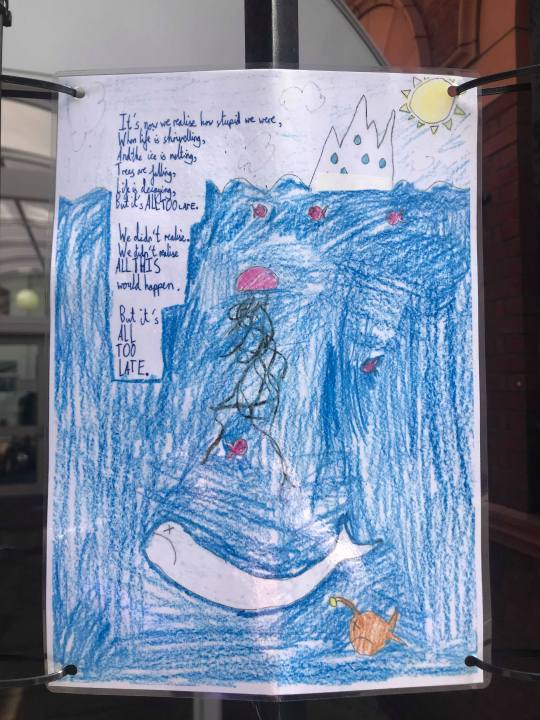 It's now we realise how stupid we were,
When life is shrivelling,
And the ice is melting,
Trees are falling,
Life is decaying,
But it's ALL TOO LATE.
We didn't realise.
We didn't realise
ALL THIS
would happen.
But it's
ALL
TOO
LATE.